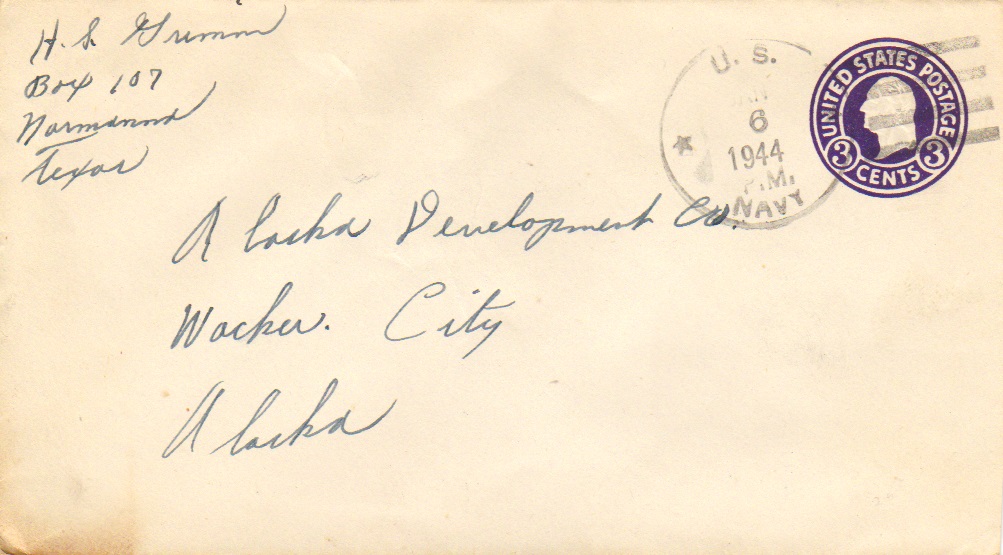 H. S. Grimm
Box 107
Normanna
Texas
U. S.
JAN
6
1944
P.M.
NAVY
UNITED STATES POSTAGE
3 CENTS 3
Alaska Development Co.
Wacker. City
Alaska